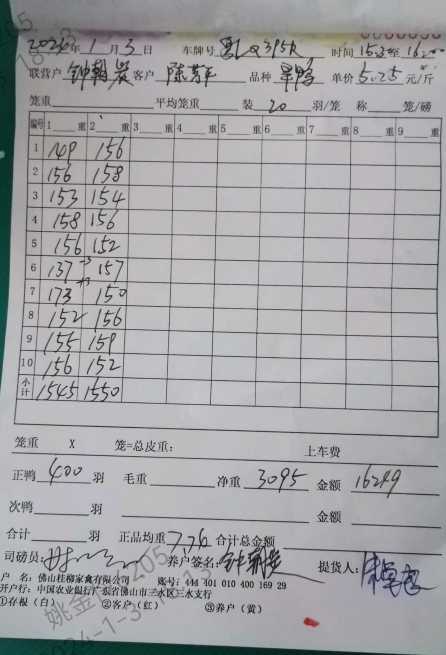 2024年1月3日 车牌号 粤L Q395R 时间 15:3 至 16:20
联营户 钟朝炭 客户 陈 平 品种 旱鸭 单价 5.25 元/斤
笼重 平均笼重 装 20 羽/笼 称 笼/磅
编号 1 重 2 重 3 重 4 重 5 重 6 重 7 重 8 重 9 重
1 149 156
2 156 158
3 153 154
4 158 156
5 156 152
6 137 +3 157
7 173 +3 150
8 152 156
9 155 159
10 156 152
小计 1545 1550
笼重 X 笼=总皮重: 上车费
正鸭 400 羽 毛重 净重 3095 金额 16249
次鸭 羽 金额
合计 羽 正品均重 7.74 合计总金额
司磅员: 养户签名: 提货人:
户 名: 佛山桂柳家禽有限公司 账号: 444 401 010 400 169 29
开户行: 中国农业银行广东省佛山市三水区三水支行
①存根(白) ②客户(红) ③养户(黄)